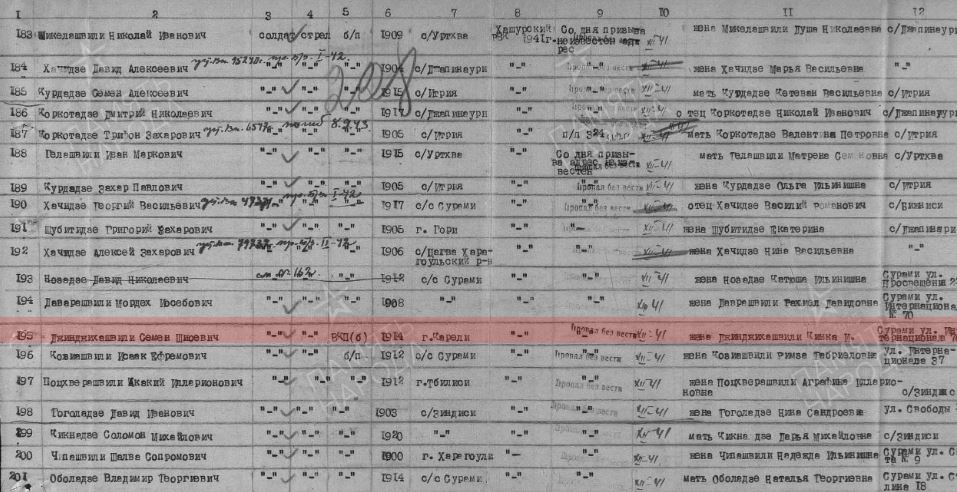 1 2 3 4 5 6 7 8 9 10 11 12
183 Микелашвили Николай Иванович солдат стрел б/п 1909 с/Уртхва Хашурский РВК 1941г. Со дня призыва неизвестен адрес XII-41 жена Микелашвили Душа Николаевна с/Джапинаури
184 Хачидзе Давид Алексеевич "-" "-" "-" 1904 с/Джапинаури "-" "-" Пропал без вести жена Хачидзе Марья Васильевна "-"
185 Курдадзе Семен Алексеевич "-" "-" "-" 1915 с/Итрия "-" "-" Пропал без вести XII-41 мать Курдадзе Кетеван Васильевна с/Итрия
186 Коркотадзе Дмитрий Николаевич "-" "-" "-" 1917 с/Джапинаури "-" "-" XII-41 отец Коркотадзе Николай Иванович с/Джапинаури
187 Коркотадзе Трифон Захарович погиб 8.943 "-" "-" "-" 1905 с/Итрия "-" п/п 324 мать Коркотадзе Валентина Петровна с/Итрия
188 Телашвили Иван Маркович "-" "-" "-" 1915 с/Уртхва "-" Со дня призыва адрес неизвестен Пропал без вести XII-41 мать Телашвили Матрена Семеновна с/Уртхва
189 Курдадзе Захар Павлович "-" "-" "-" 1905 с/Итрия "-" "-" Пропал без вести XII-41 жена Курдадзе Ольга Ильинишна с/Итрия
190 Хачидзе Георгий Васильевич "-" "-" "-" 1917 с/с Сурами "-" "-" Пропал без вести отец Хачидзе Василий Романович с/Бижниси
191 Шубитидзе Григорий Захарович "-" "-" "-" 1905 г. Гори "-" "-" XII-41 жена Шубитидзе Екатерина с/Джапинаури
192 Хачидзе Алексей Захарович "-" "-" "-" 1906 с/Цагва Харагоульский р-н "-" "-" XII-41 жена Хачидзе Нина Васильевна "-"
193 Нозадзе Давид Николаевич "-" "-" "-" 1912 с/с Сурами "-" "-" XII-41 жена Нозадзе Катюша Ильинишна Сурами ул. Просвещения
194 Даварашвили Мордех Иосебович "-" "-" "-" 1908 "-" "-" "-" XII-41 жена Даврашвили Рахиол Давидовна Сурами ул. Интернационала № 70
195 Джинджихашвили Семен Шиоевич "-" "-" ВКП(б) 1914 г.Карели "-" "-" Пропал без вести XII-41 жена Джинджихашвили Цинка И. Сурами ул. Интернационала
196 Ковиашвили Исаак Ефремович "-" "-" б/п 1912 с/с Сурами "-" "-" Пропал без вести XII-41 жена Ковиашвили Римза Габриэловна ул. Интернационала 37
197 Поцхверашвили Акакий Илларионович "-" "-" "-" 1912 г.Тбилиси "-" "-" Пропал без вести XII-41 жена Поцхверашвили Аграфина Илларионовна с/Зиндиси
198 Тоголадзе Давид Иванович "-" "-" "-" 1903 с/Зиндиси "-" "-" Пропал без вести XII-41 жена Тоголадзе Нина Сандроевна ул. Свободы
199 Чикнадзе Соломон Михайлович "-" "-" "-" 1920 "-" "-" "-" XII-41 мать Чикнадзе Дарья Михайловна с/Зиндиси
200 Чипашвили Шалва Сопромович "-" "-" "-" 1900 г. Харегоули "-" "-" Пропал без вести XII-41 жена Чипашвили Надежда Ильинишна Сурами ул. № 9
201 Оболадзе Владимир Георгиевич "-" "-" "-" 1914 с/с Сурами "-" "-" Пропал без вести XII-41 мать Оболадзе Наталья Георгиевна Сурами ул. 18